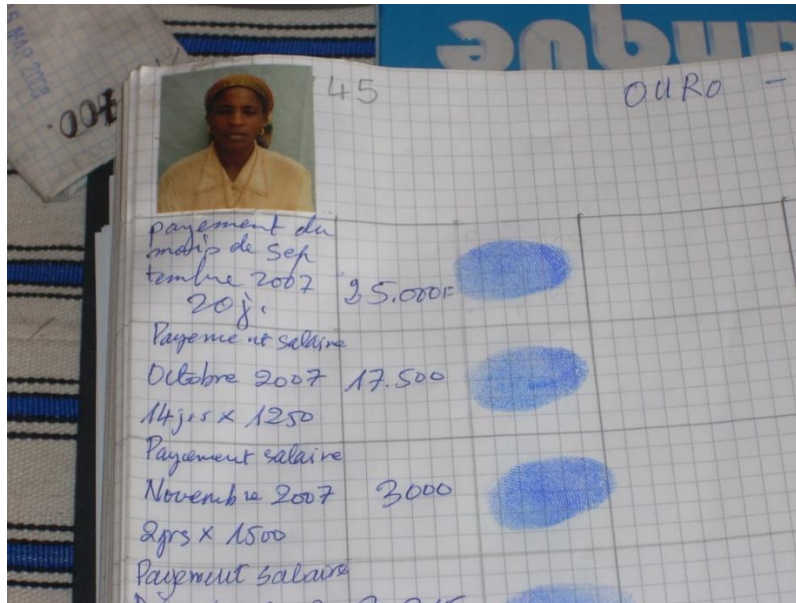 45
OURO -
payement du
mois de Sep
tembre 2007
20 j. 25.000F
Payement salaire
Octobre 2007 17.500
14 jrs x 1250
Payement salaire
Novembre 2007 3000
2jrs x 1500
Payement salaire